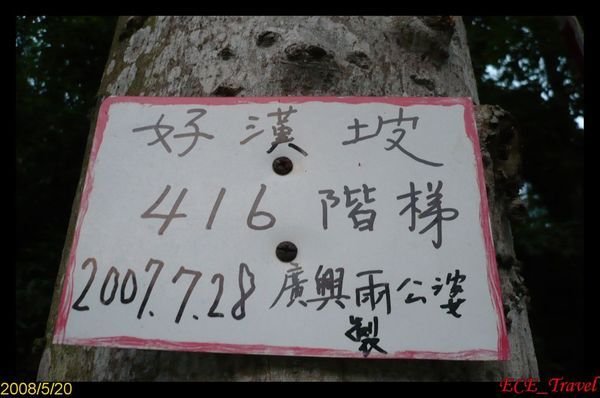 好漢坡
416階梯
2007.7.28廣興雨公婆
製
2008/5/20
ECE_Travel